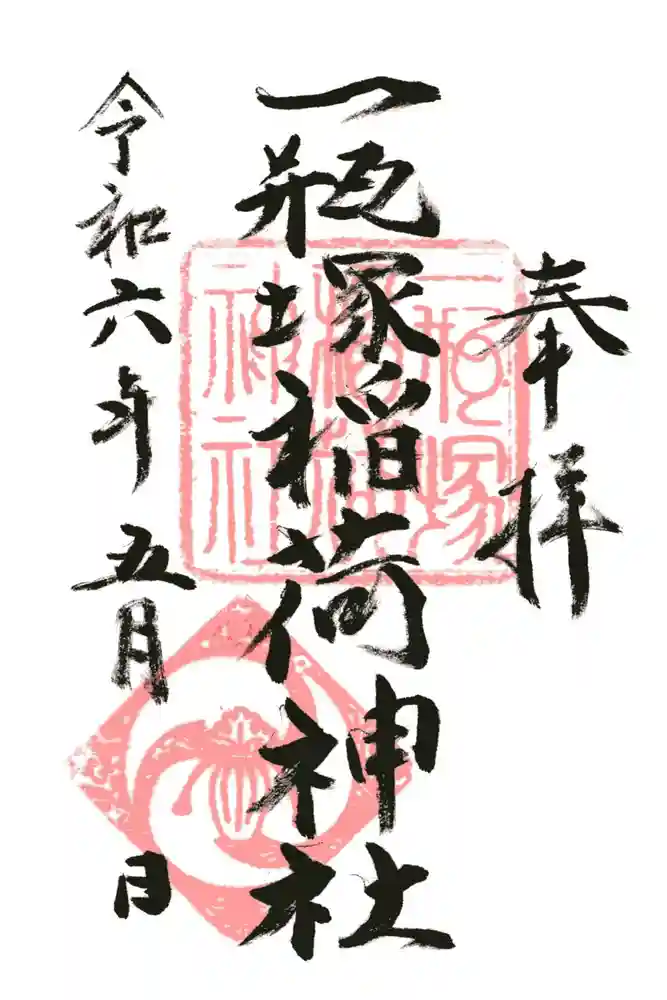 奉拝
一瓶塚稲荷神社
一瓶塚
稲荷
神社
令和六年五月 日